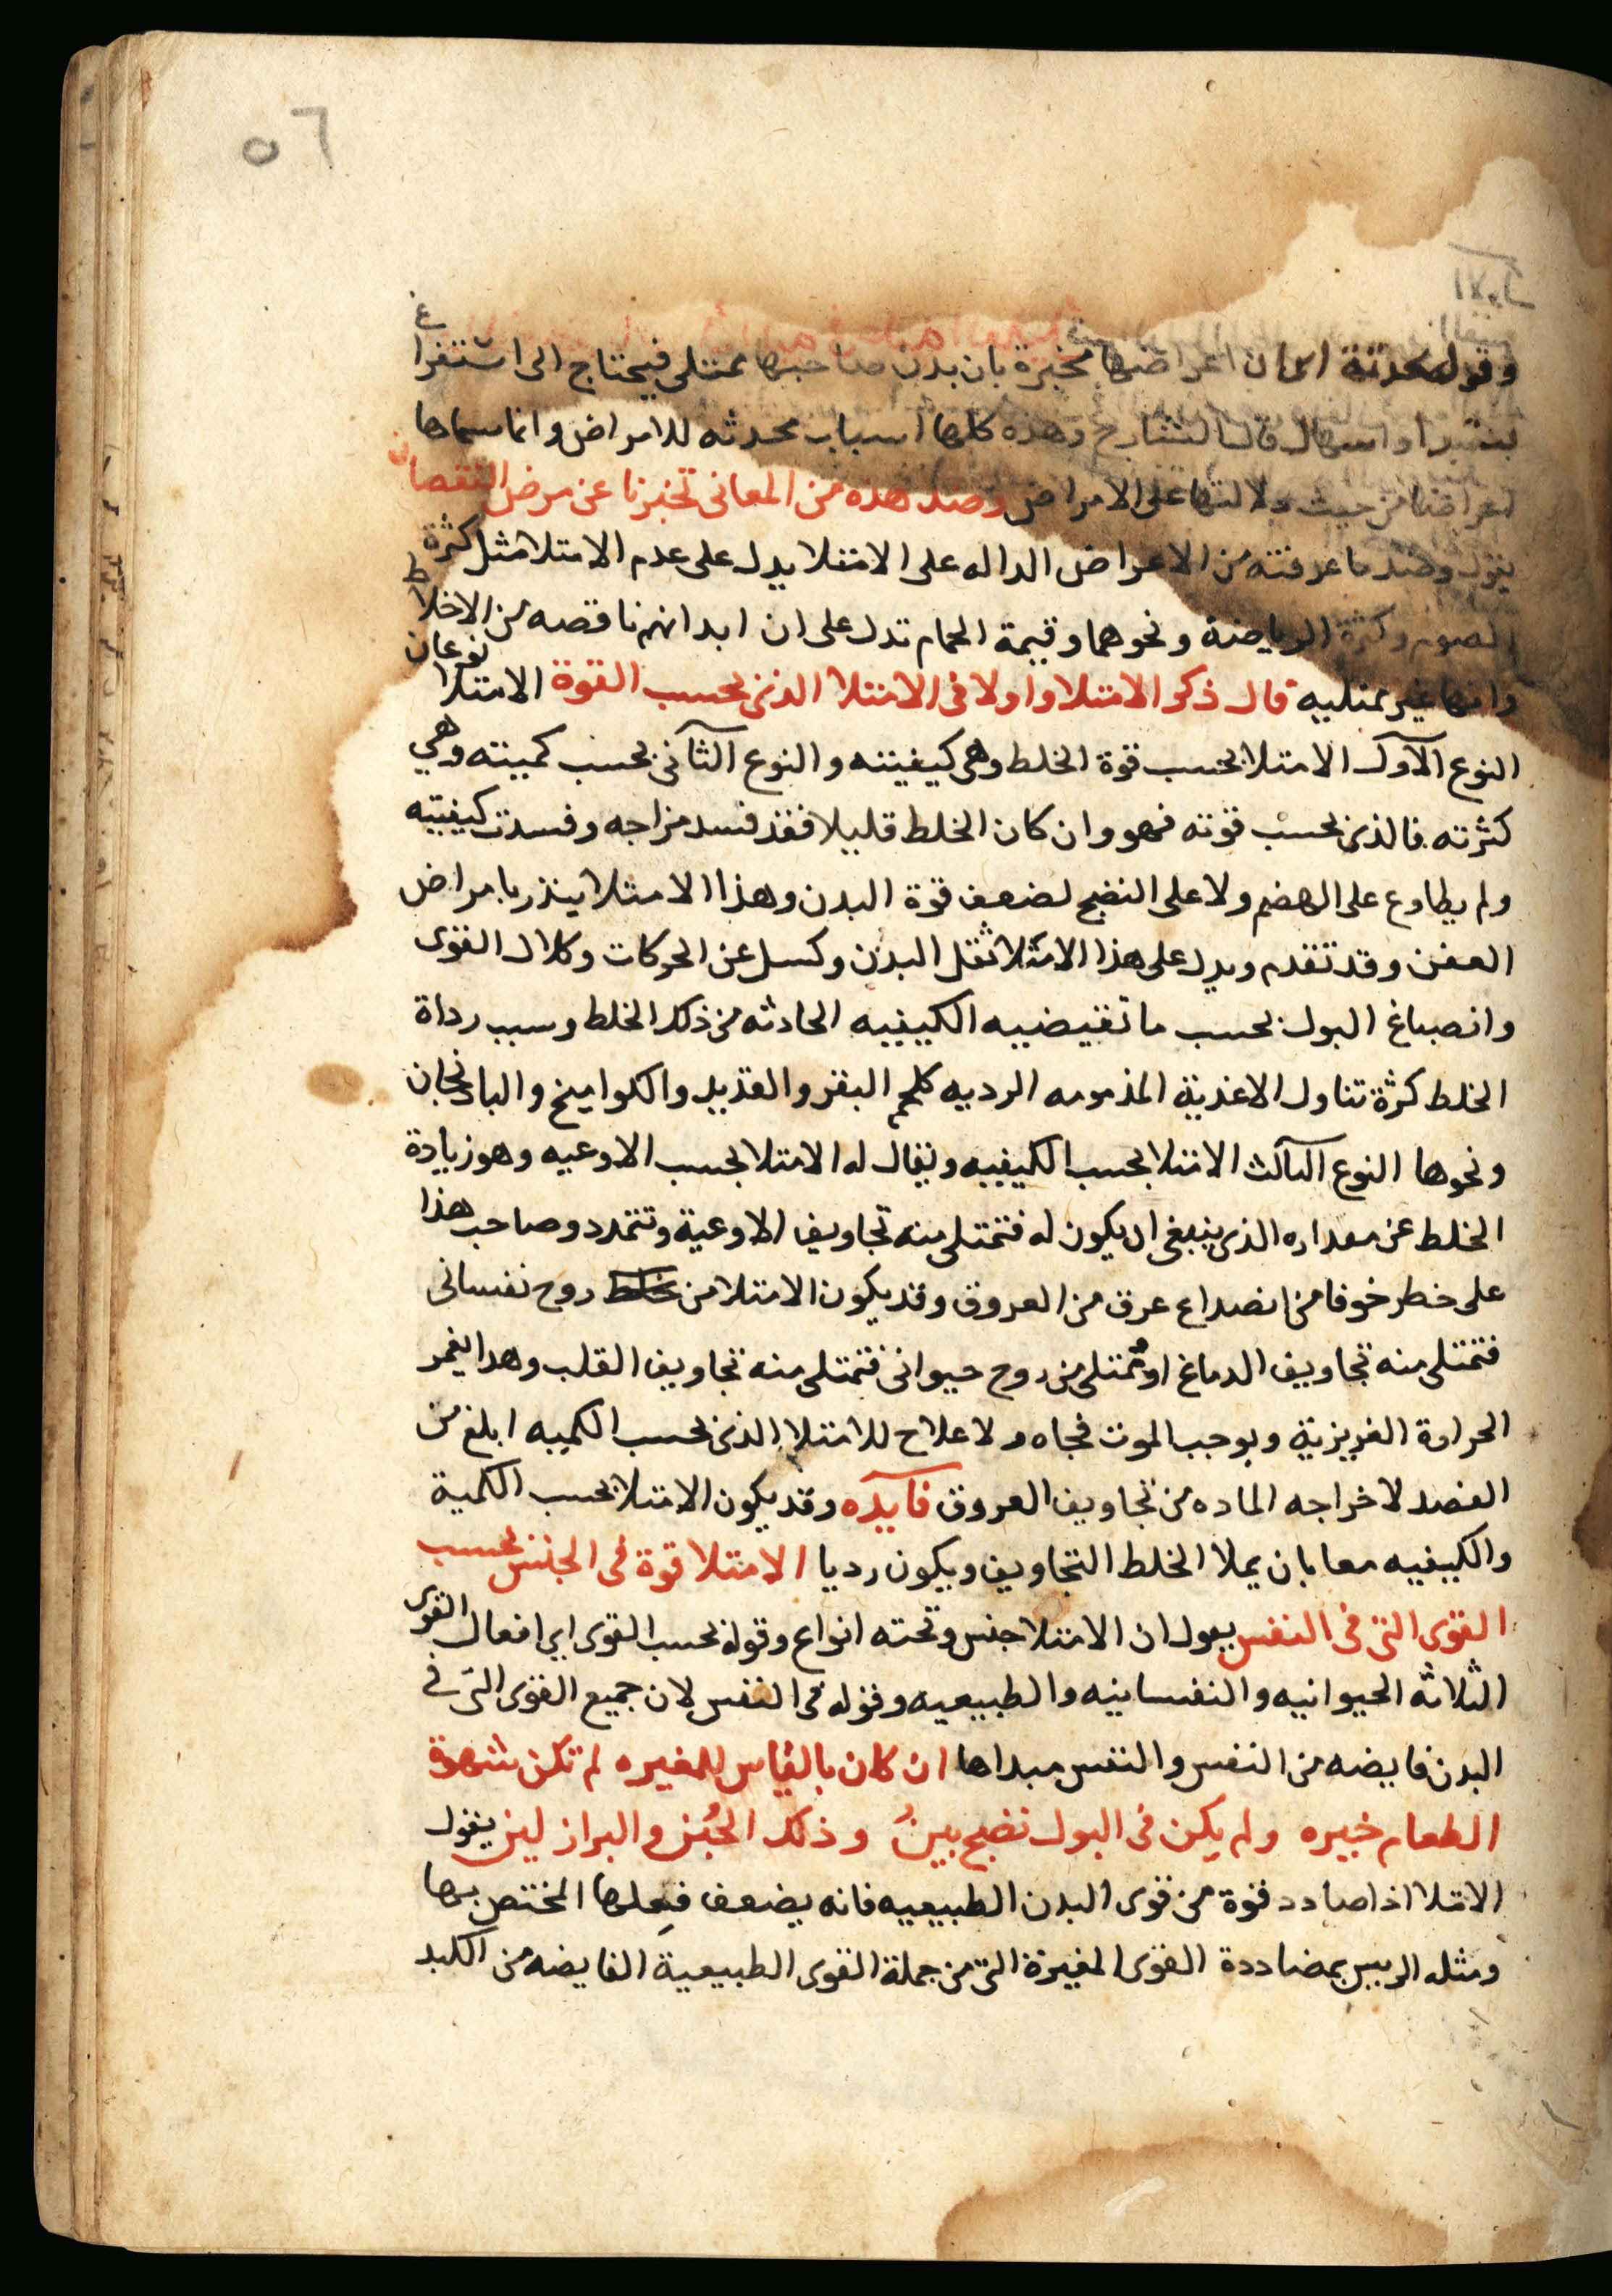 ٥٦
وقوله محدثة اى ان اعراضها مخبرة بان بدن صاحبها ممتلى فيحتاج الى استفراغ
او اسهال قال الشارح وهذه كلها اسباب محدثه للامراض وانما سماها
اعراضا من حيث دلالتها على الامراض وضد هذه من المعانى تخبرنا عن مرض النقصان
يقول وضد ما عرفته من الاعراض الداله على الامتلا يدل على عدم الامتلا مثل كثرة
الصوم وكثرة الرياضة ونحوهما وقيمة الحمام تدل على ان ابدانهم ناقصه من الاخلاط
وانها غير ممتليه قال ذكر الامتلا واولا فى الامتلا الذى بحسب القوة الامتلا نوعان
النوع الاول الامتلا بحسب قوة الخلط وهى كيفيته والنوع الثانى بحسب كميته وهي
كثرته فالذى بحسب قوته فهو وان كان الخلط قليلا فقد فسد مزاجه وفسدت كيفيته
ولم يطاوع على الهضم ولا على النضج لضعف قوة البدن وهذا الامتلا ينذر بامراض
العفن وقد تقدم ويدل على هذا الامتلا ثقل البدن وكسل عن الحركات وكلال القوى
وانصباغ البول بحسب ما تقيضييه الكيفيه الحادثه من ذلك الخلط وسبب رداة
الخلط كثرة تناول الاغذية المذمومه الرديه كلحم البقر والقديد والكواميخ والباذنجان
ونحوها النوع الثالث الامتلا بحسب الكيفيه ويقال له الامتلا بحسب الاوعيه وهو زيادة
الخلط عن مقداره الذى ينبغى ان يكون له فتمتلى منه تجاويف الاوعية وتتمدد وصاحب هذا
على خطر خوفا من انصداع عرق من العروق وقد يكون الامتلا من خلط روح نفسانى
فتمتلى منه تجاويف الدماغ او تمتلى من روح حيوانى فتمتلى منه تجاويف القلب وهذا يغمر
الحرارة الغريزية ويوجب الموت فجاه ولا علاج للامتلا الذى بحسب الكميه ابلغ من
الفصد لاخراجه الماده من تجاويف العروق فايده وقد يكون الامتلا بحسب الكمية
والكيفيه معا بان يملا الخلط التجاويف ويكون رديا الامتلا قوة فى الجنس بحسب
القوى التى فى النفس يقول ان الامتلا جنس وتحته انواع وقوله بحسب القوى اى افعال القوى
الثلاثه الحيوانيه والنفسانيه والطبيعيه وقوله فى النفس لان جميع القوى التى فى
البدن فايضه من النفس والنفس مبداها ان كان بالقياس للمغيره لم تكن شهوة
الطعام خيره ولم يكن فى البول نضج بين وذلك الخبز والبراز لين يقول
الامتلا اذا صادد قوة من قوى البدن الطبيعيه فانه يضعف فعلها المختص بها
ومثله الرييس بمضاددة القوى المغيرة التى من جملة القوى الطبيعية الفايضه من الكبد